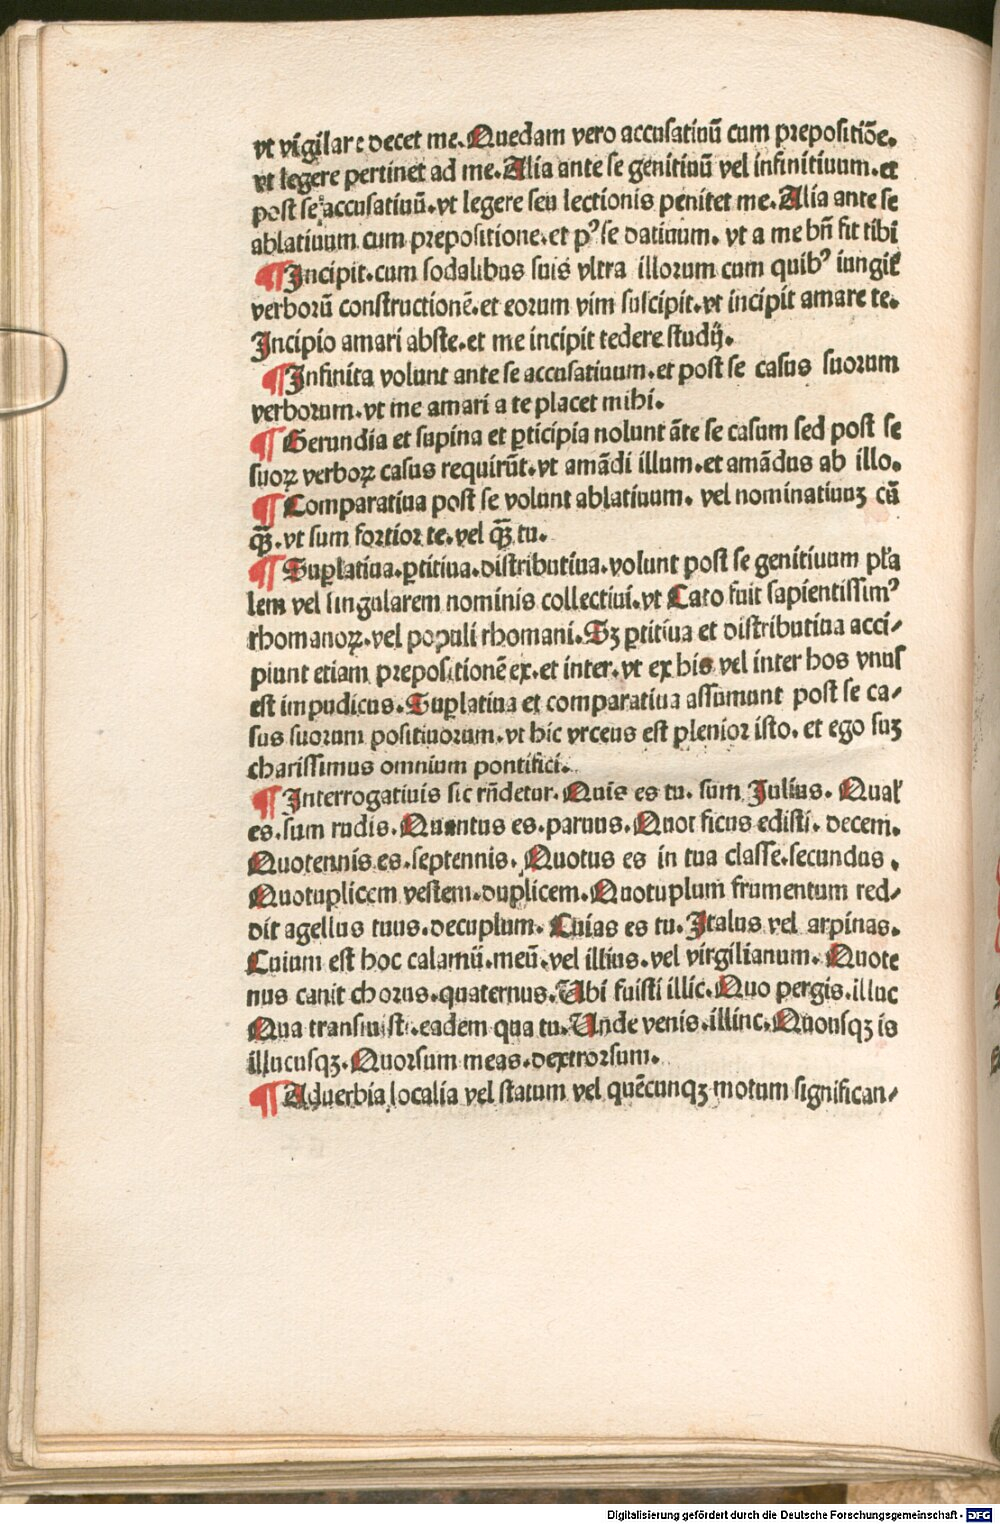 vt vigilare decet me. Quedam vero accusatiuū cum prepositiōe.
vt legere pertinet ad me. Alia ante se genitiuū vel infinitiuum. et
post se accusatiuū. vt legere seu lectionis penitet me. Alia ante se
ablatiuum cum prepositione. et pꝰ se datiuum. vt a me bn̄ fit tibi
¶ Incipit. cum sodalibus suis vltra illorum cum quibꝰ iungit̄
verborū constructionē. et eorum vim suscipit. vt incipit amare te.
Incipio amari abste. et me incipit tedere studij.
¶ Infinita volunt ante se accusatiuum. et post se casus suorum
verborum. vt me amari a te placet mihi.
¶ Gerundia et supina et ꝑticipia nolunt āte se casum sed post se
suoꝝ verboꝝ casus requirūt. vt amādi illum. et amādus ab illo.
¶ Comparatiua post se volunt ablatiuum. vel nominatiuuꝫ cū
qꝫ̄. vt sum fortior te. vel qꝫ̄ tu.
¶ Suꝑlatiua. ꝑtitiua. distributiua. volunt post se genitiuum pl̄a
lem vel singularem nominis collectiui. vt Cato fuit sapientissimꝰ
rhomanoꝝ. vel populi rhomani. Sꝫ ꝑtitiua et distributiua acci/
piunt etiam prepositionē ex. et inter. vt ex his vel inter hos vnus
est impudicus. Suꝑlatiua et comparatiua assumunt post se ca/
sus suorum positiuorum. vt hic vrceus est plenior isto. et ego suꝫ
charissimus omnium pontifici.
¶ Interrogatiuis sic rn̄detur. Quis es tu. sum Julius. Qual'
es. sum rudis. Quantus es. paruus. Quot ficus edisti. decem.
Quotennis es. septennis. Quotus es in tua classe. secundus.
Quotuplicem vestem. duplicem. Quotuplum frumentum red/
dit agellus tuus. decuplum. Cuias es tu. Italus vel arpinas.
Cuium est hoc calamū. meū. vel illius. vel virgilianum. Quote
nus canit chorus. quaternus. Ubi fuisti illic. Quo pergis. illuc
Qua transiuisti. eadem qua tu. Unde venis. illinc. Quousqꝫ is
illucusqꝫ. Quorsum meas. dextrorsum.
¶ Aduerbia localia vel statum vel quēcunqꝫ motum significan/
Digitalisierung gefördert durch die Deutsche Forschungsgemeinschaft - DFG